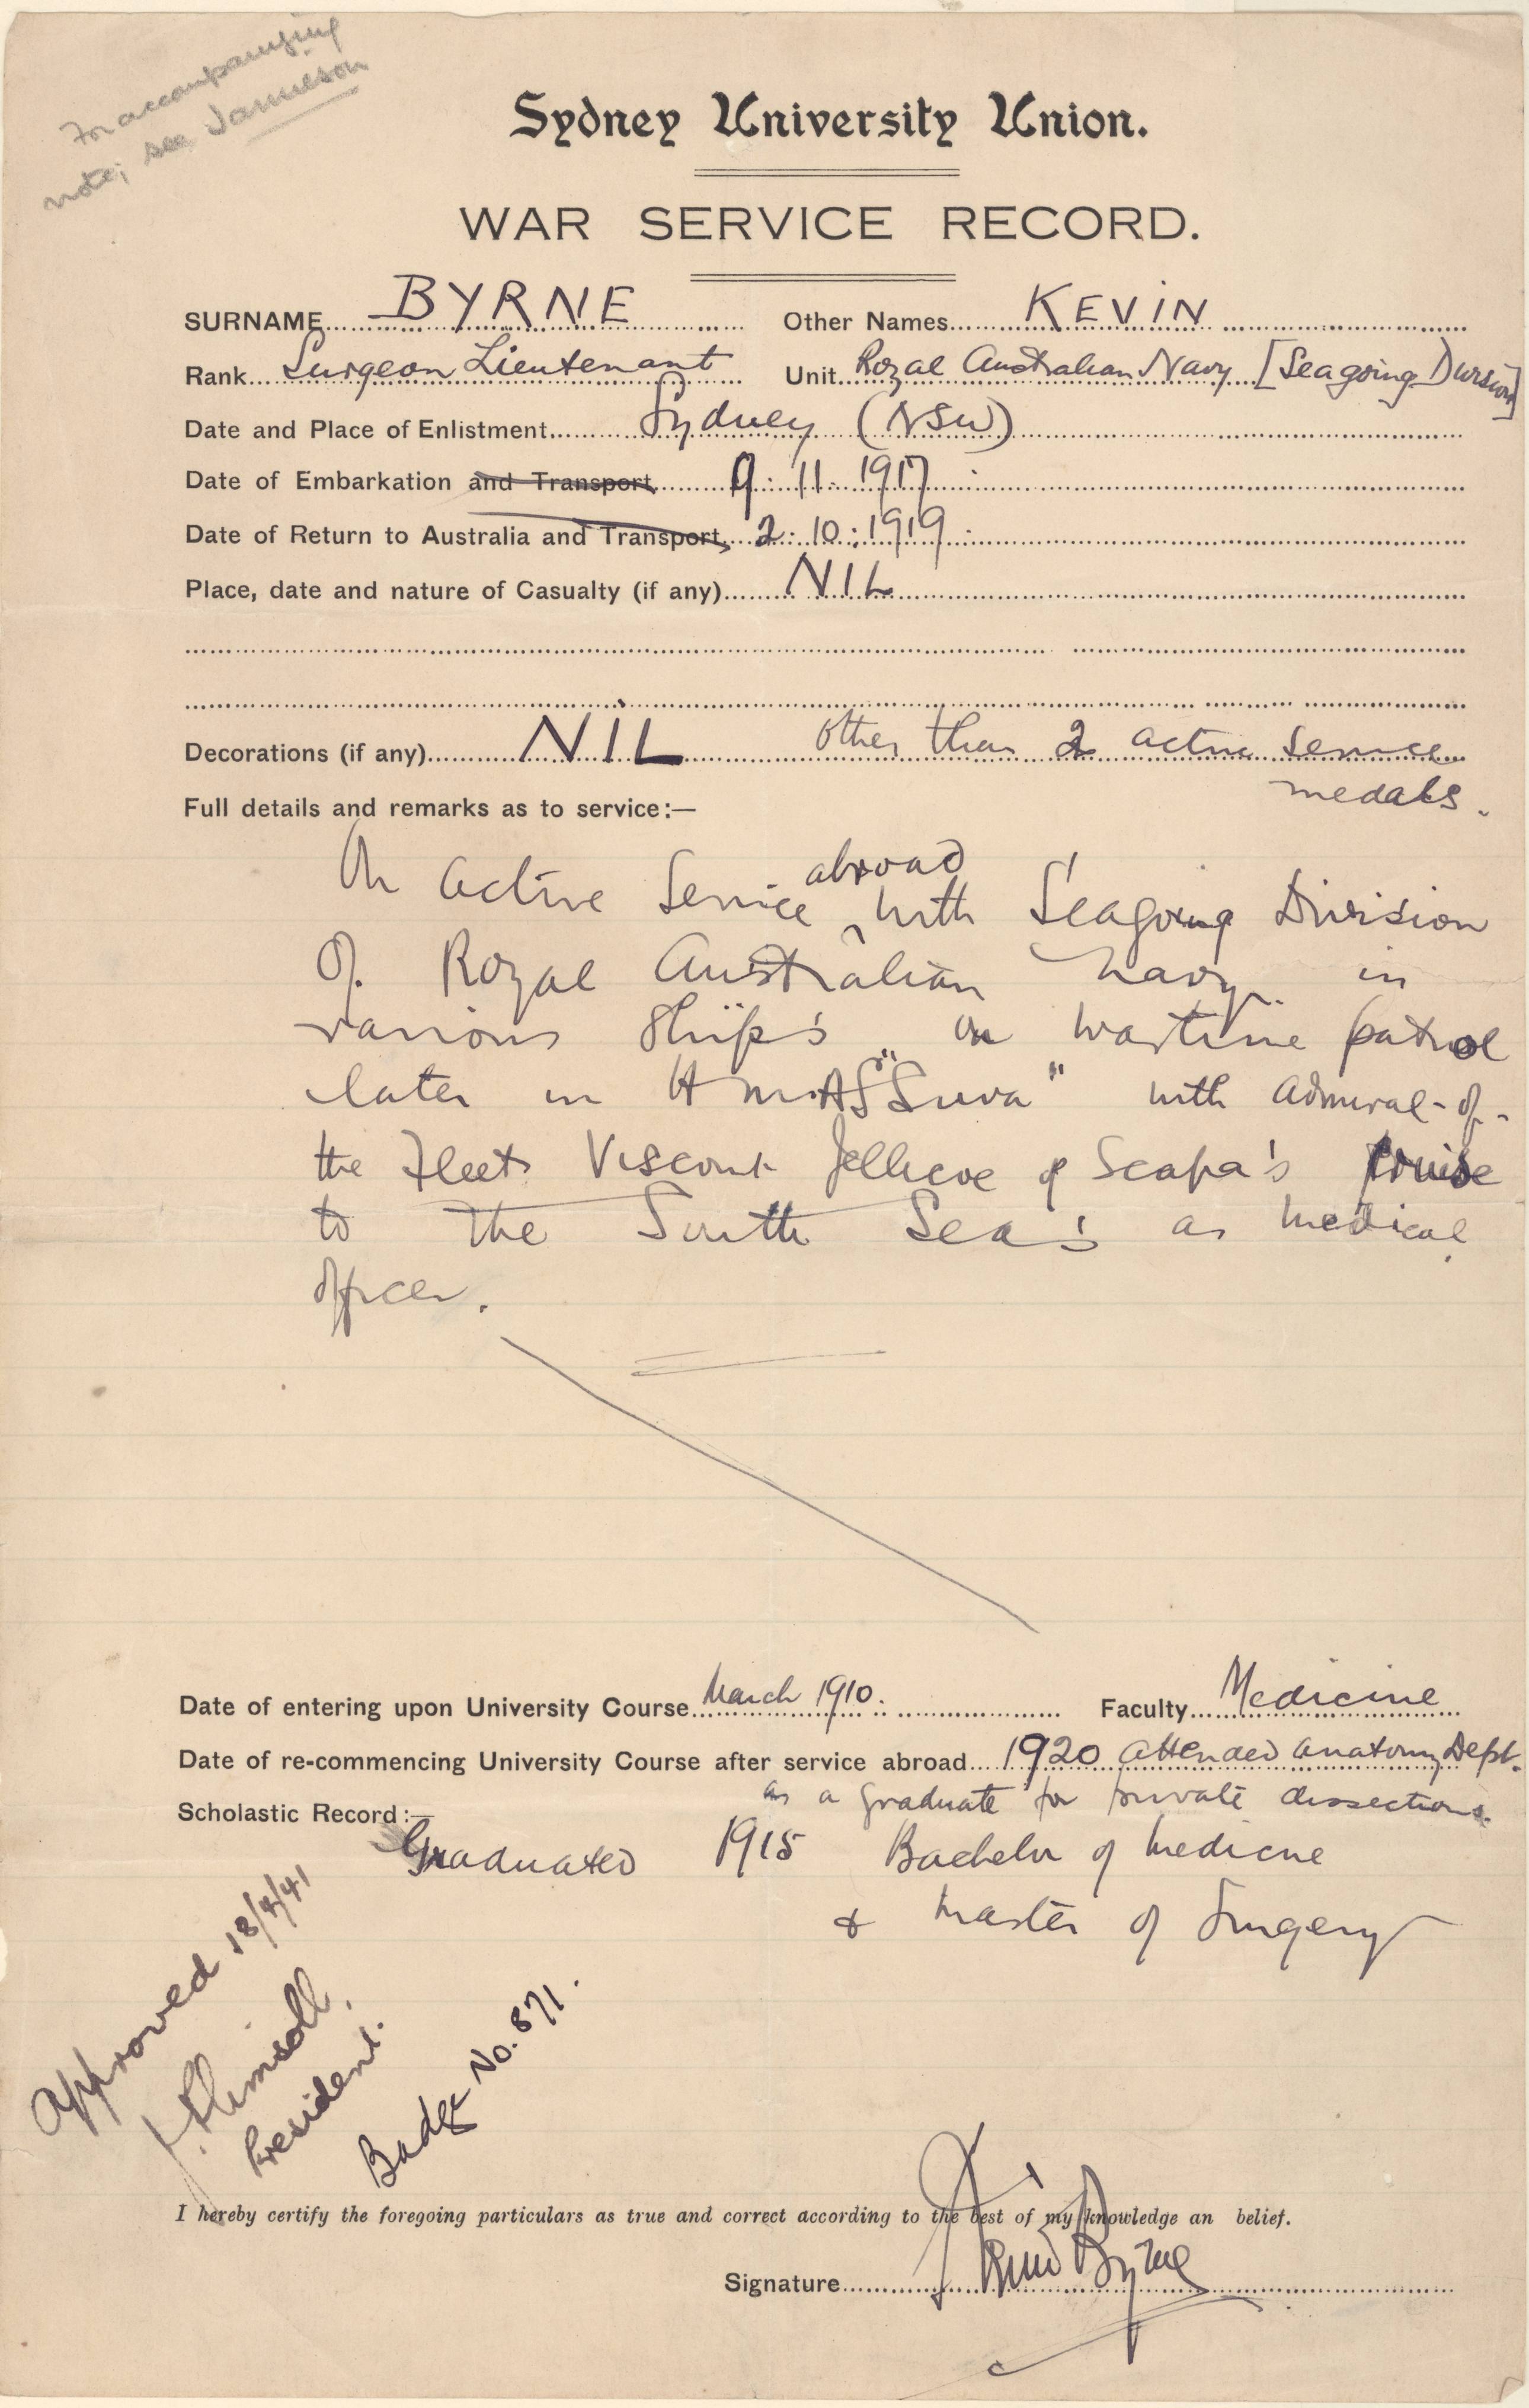 For accompanying
note; see Jamieson
Sydney University Union.
WAR SERVICE RECORD.
SURNAME BYRNE Other Names KEVIN
Rank Surgeon Lieutenant Unit Royal Australian Navy [Seagoing Division]
Date and Place of Enlistment Sydney (NSW)
Date of Embarkation and Transport 9.11.1917.
Date of Return to Australia and Transport 2.10.1919.
Place, date and nature of Casualty (if any) NIL
Decorations (if any) NIL other than 2 active service
medals.
Full details and remarks as to service:—
On active service abroad with Seagoing Division
of Royal Australian Navy in
various ships on wartime patrol
later in H.M.A.S "Suva" with Admiral-of-
the Fleet Viscount Jellicoe of Scapa's cruise
to the South Sea's as medical
officer.
Date of entering upon University Course March 1910. Faculty Medicine
Date of re-commencing University Course after service abroad 1920 attended anatomy Dept.
as a graduate for private dissections.
Scholastic Record:—
Graduated 1915 Bachelor of Medicine
& Master of Surgery
Approved 18/4/41
President.
Badge No. 871.
I hereby certify the foregoing particulars as true and correct according to the best of my knowledge an belief.
Signature Kevin Byrne